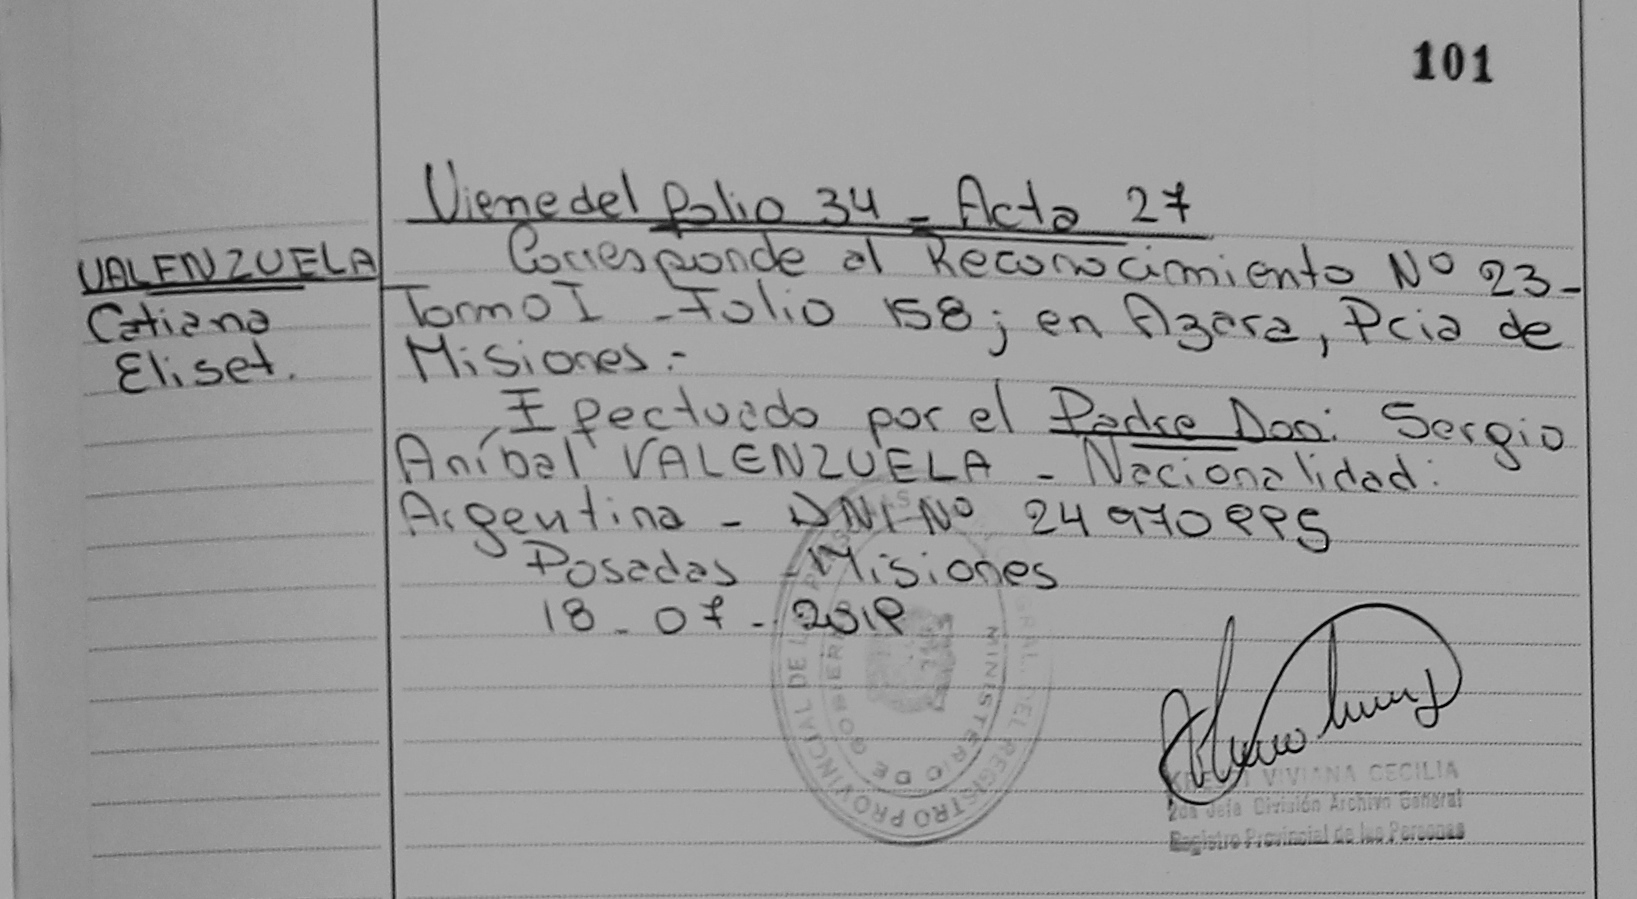 101
Viene del folio 34 - Acta 27
VALENZUELA
Catiana
Eliset.
Corresponde al Reconocimiento Nº 23-
Tomo I - Folio 158; en Azara, Pcia de
Misiones.-
Efectuado por el Padre Don: Sergio
Aníbal VALENZUELA - Nacionalidad:
Argentina - DNI Nº 24 970 995
Posadas - Misiones
18 - 07 - 2019
REGISTRO PROVINCIAL DE LAS PERSONAS
MINISTERIO DE GOBIERNO
VIVIANA CECILIA
2da Jefa División Archivo General
Registro Provincial de las Personas